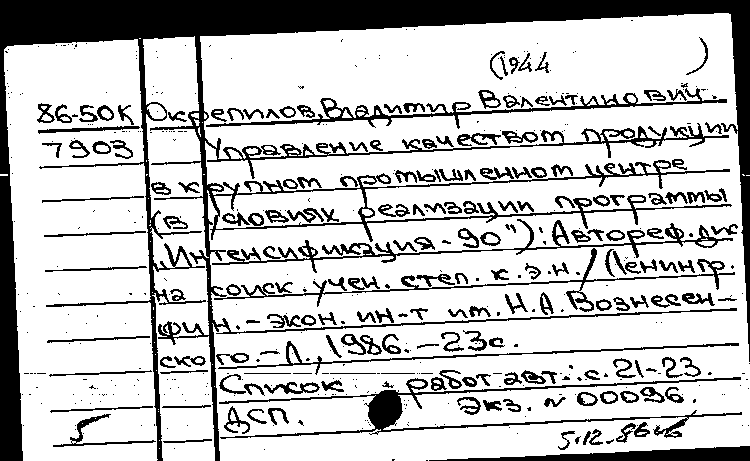 (1944 )
86-50К Окрепилов, Владимир Валентинович.
7903 Управление качеством продукции
в крупном промышленном центре
(в условиях реализации программы
„Интенсификация-90"): Автореф. дис.
на соиск. учен. степ. к.э.н. / Ленингр.
фин.-экон. ин-т им. Н.А. Вознесен-
ского. - Л., 1986. - 23с.
Список работ авт.: с. 21-23.
ДСП. Экз. № 00096.
5.12.86